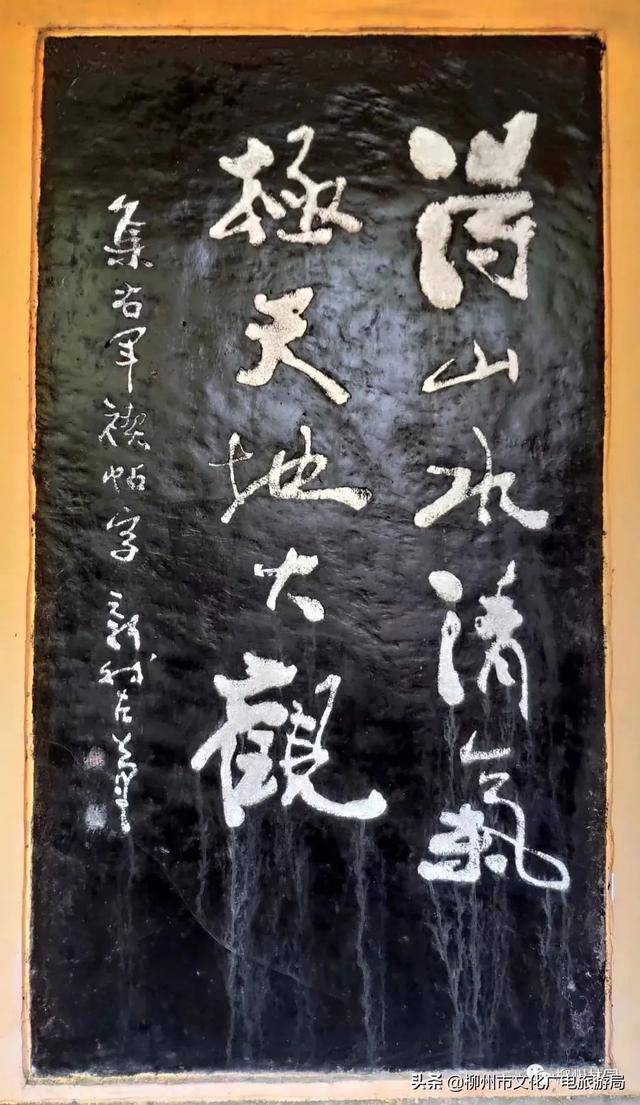 得山水清氣
極天地大觀
集右軍禊帖字
头条 @柳州市文化广电旅游局